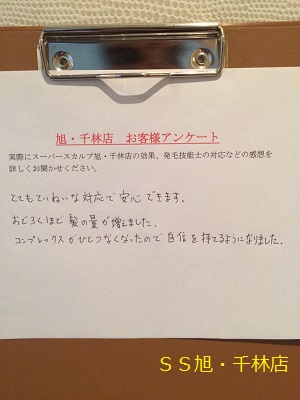 旭・千林店　お客様アンケート
実際にスーパースカルプ旭・千林店の効果、発毛技能士の対応などの感想を
詳しくお聞かせください。
とてもていねいな対応で安心できます。
おどろくほど髪の量が増えました。
コンプレックスがひとつなくなったので自信を持てるようになりました。
ＳＳ旭・千林店